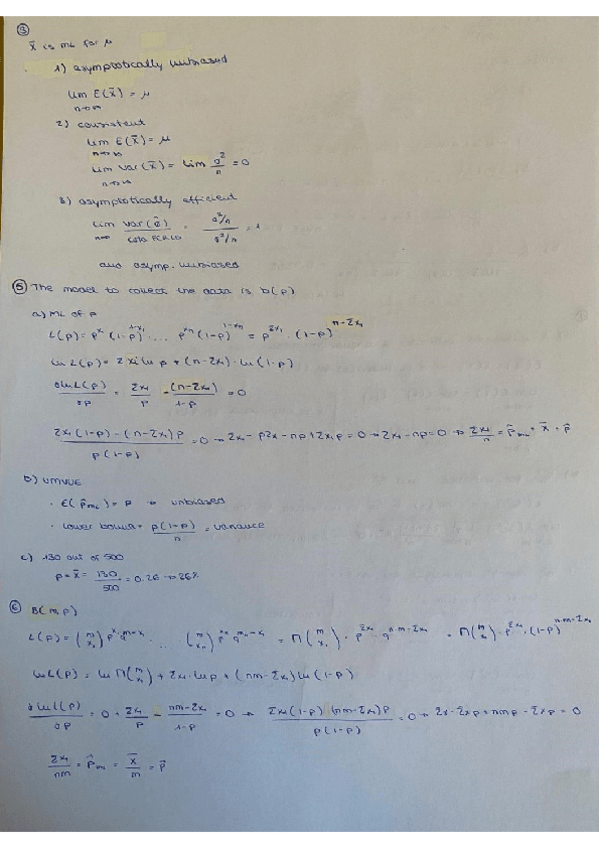 ③
x̄ is ML for μ
1) asymptotically unbiased
lim E(x̄) = μ
n→∞
2) consistent
lim E(x̄) = μ
n→∞
lim Var(x̄) = lim σ²/n = 0
n→∞
3) asymptotically efficient
lim Var(θ̂) / cota FCRLB = σ²/n / σ²/n = 1
n→∞
and asymp. unbiased
⑤ The model to collect the data is b(p)
a) ML of p
L(p) = p^x₁ (1-p)^1-x₁ .... p^xn (1-p)^1-xn = p^Σxi (1-p)^n-Σxi
ln L(p) = Σxi ln p + (n-Σxi) · ln(1-p)
∂ln L(p)/∂p = Σxi/p - (n-Σxi)/1-p = 0
Σxi(1-p) - (n-Σxi)p / p(1-p) = 0 → Σxi - pΣx - np + Σxip = 0 → Σxi - np = 0 → Σxi/n = p̂ML = x̄ = p̂
b) UMVUE
· E(p̂ML) = p → unbiased
· lower bound = p(1-p)/n = variance
c) 130 out of 500
p = x̄ = 130/500 = 0.26 → 26%
⑥ B(m,p)
L(p) = (m x₁) p^x₁ q^m-x₁ .... (m xn) p^xn q^m-xn = Π(m xi) · p^Σxi · q^nm-Σxi = Π(m xi) · p^Σxi · (1-p)^nm-Σxi
ln L(p) = ln Π(m xi) + Σxi · ln p + (nm-Σxi) ln(1-p)
∂ln L(p)/∂p = 0 + Σxi/p - nm-Σxi/1-p = 0 → Σxi(1-p) (nm-Σxi)p / p(1-p) = 0 → Σx - Σxp + nmp - Σxp = 0
Σxi/nm = p̂ML = x̄/m = p̂